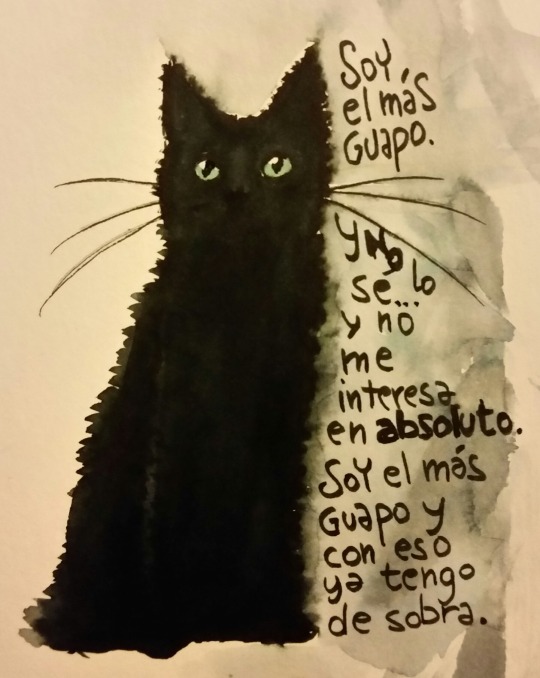 Soy
el más
Guapo.
y No
sé... lo
y no
me
interesa
en absoluto.
Soy el más
Guapo y
con eso
ya tengo
de sobra.